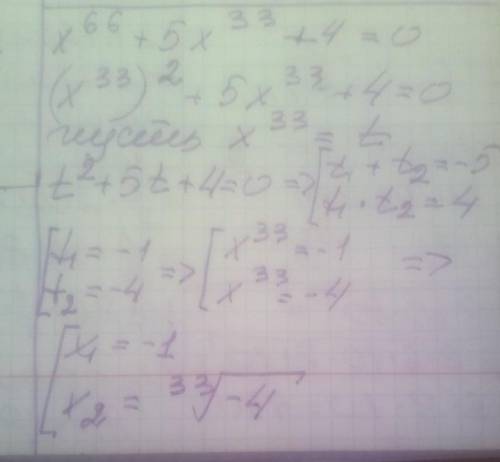 x⁶⁶ + 5x³³ + 4 = 0
(x³³)² + 5x³³ + 4 = 0
пусть x³³ = t
t² + 5t + 4 = 0 => [t₁ + t₂ = -5
t₁ · t₂ = 4
[t₁ = -1 => [x³³ = -1 =>
t₂ = -4 x³³ = -4
[x₁ = -1
x₂ = ³³√-4